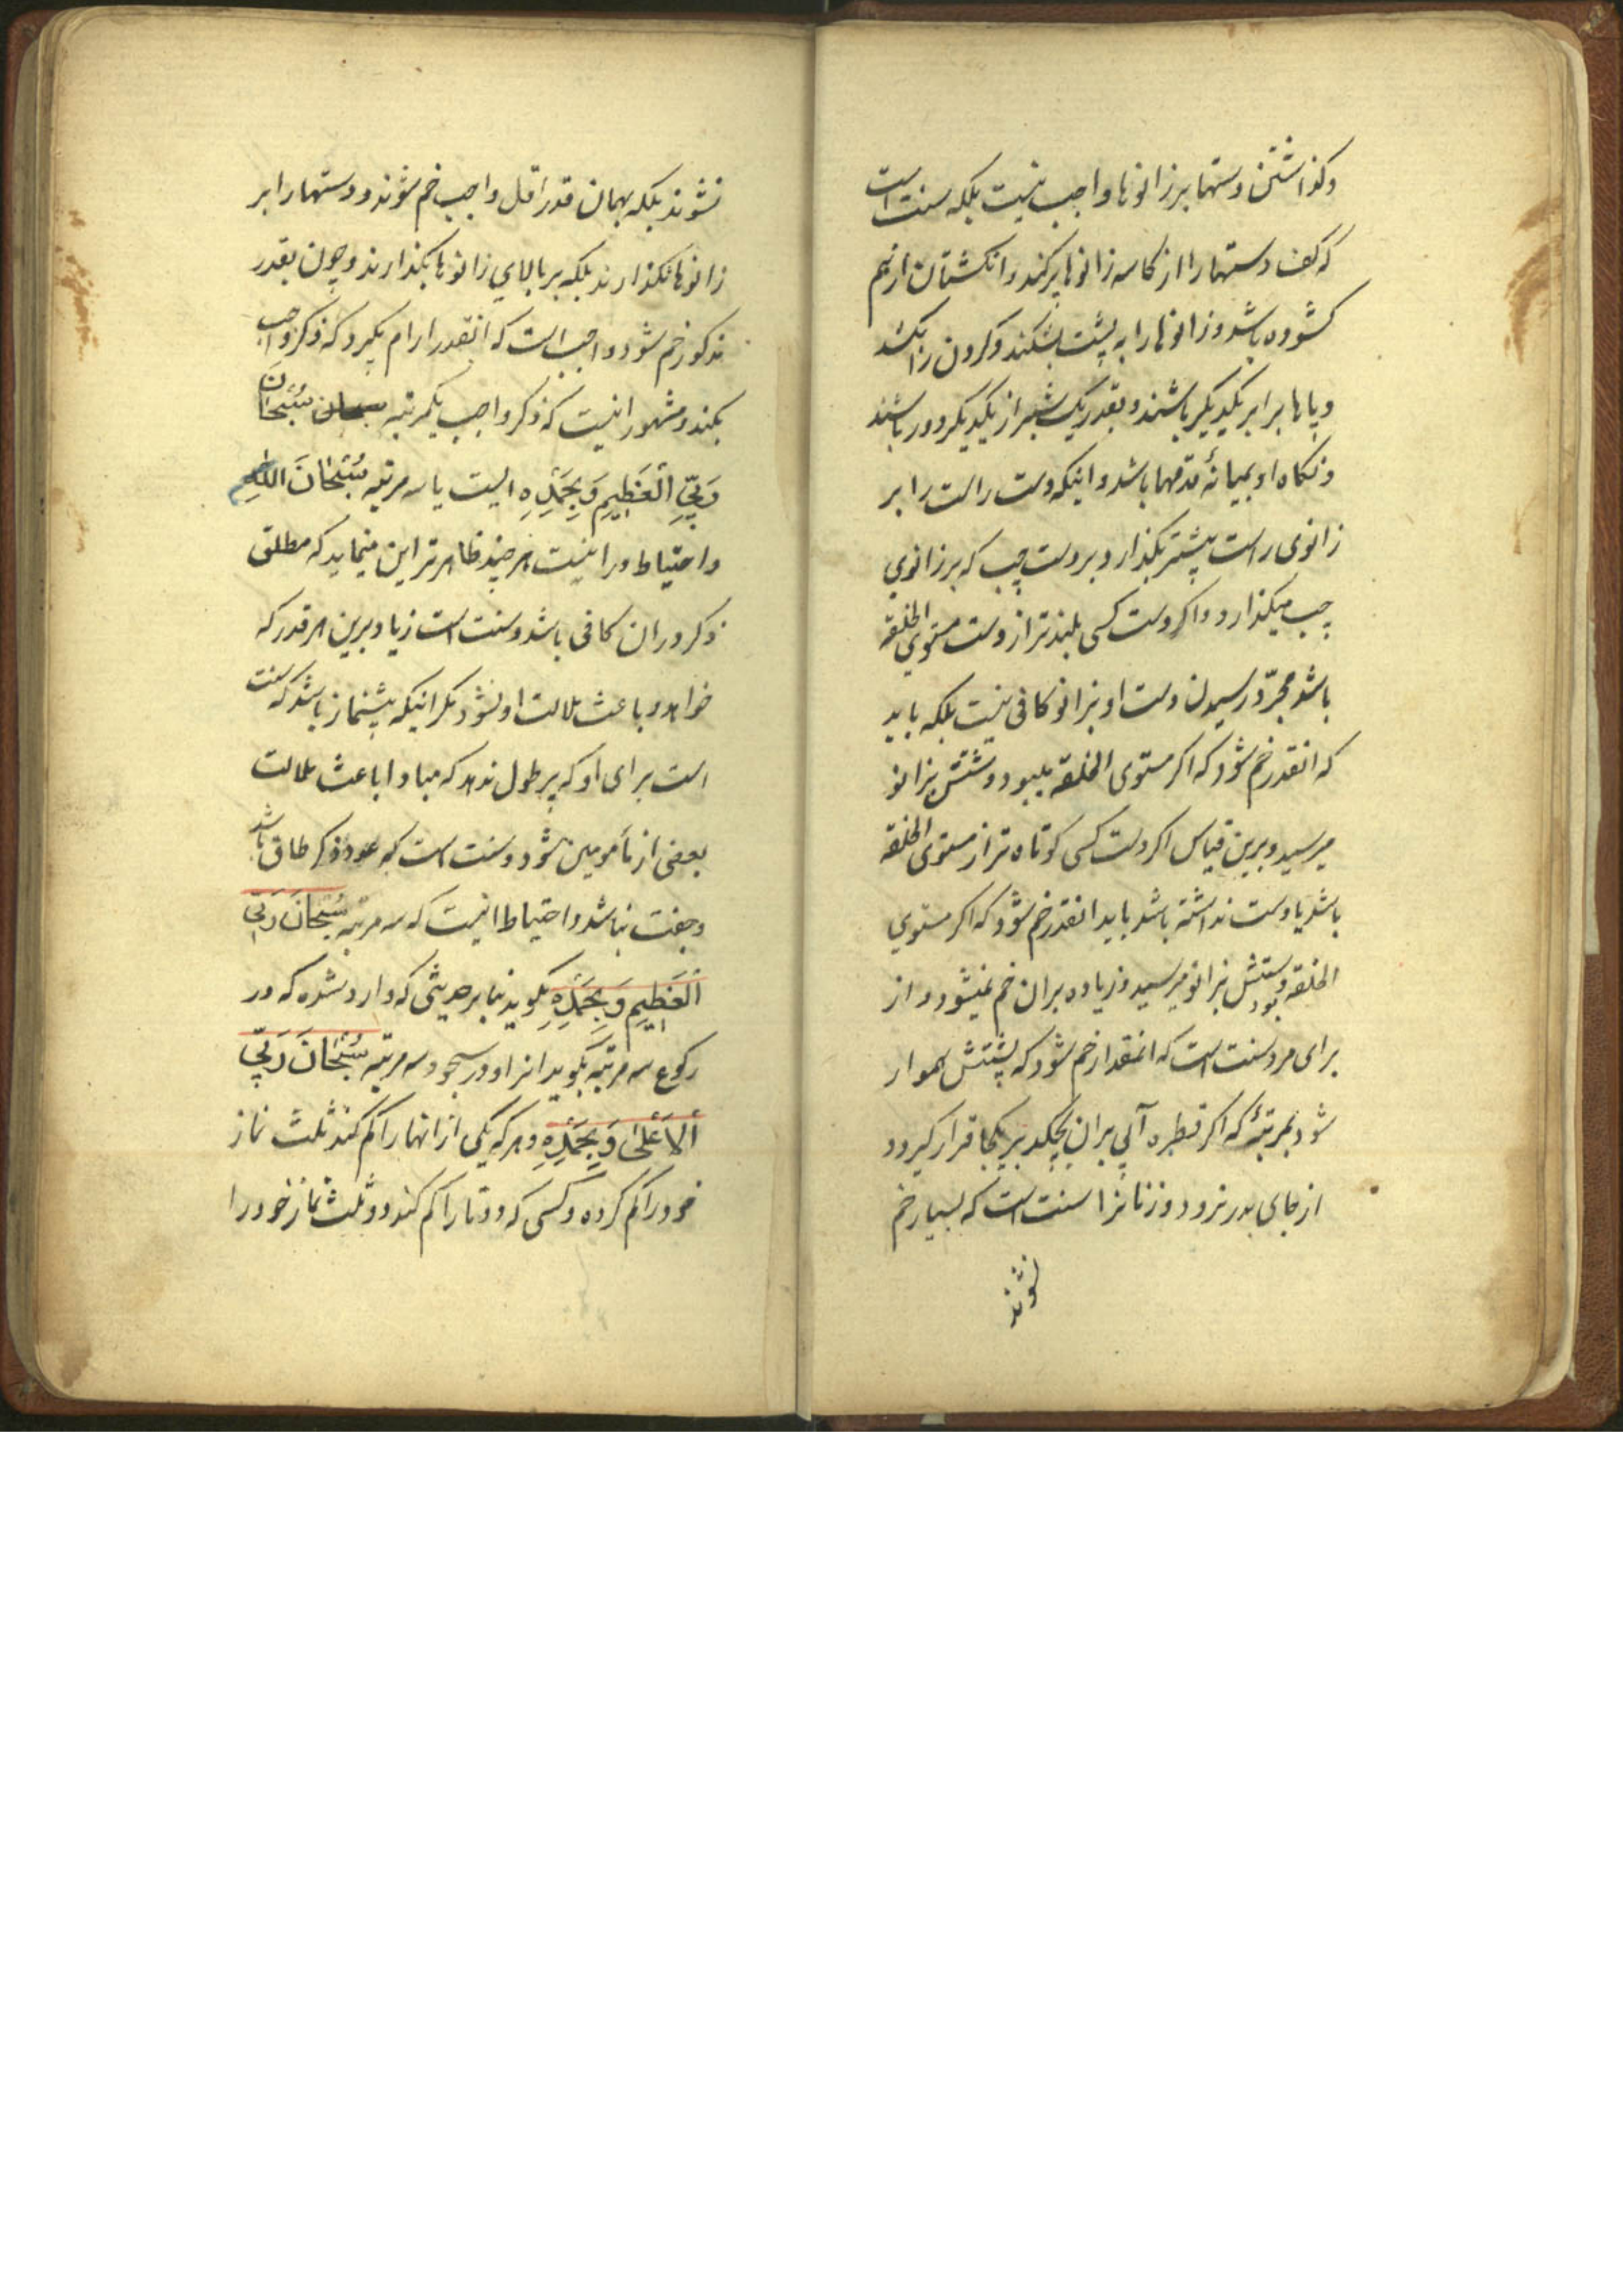 وکذاشتن دستها بر زانوها واجب نیست بلکه سنت است
که کف دستها را از کاسه زانوها پر کند وانکشتان از هم
کشوده باشد و زانوها را به پشت بشکند وکردن را بکشد
و پاها برابر یکدیکر باشند و بقدر یک شبر از یکدیکر دور باشند
و نکاه او بمیانهٔ قدمها باشد و اینکه دست راست را بر
زانوی راست پیشتر بکذارد بر دست چپ که بر زانوی
چپ میکذارد و اکر دست کسی بلندتر از دست مستوی الخلقه
باشد مجرّد رسیدن دست او بزانو کافی نیست بلکه باید
که انقدر خم شود که اکر مستوی الخلقه میبود دستش بزانو
میرسید و برین قیاس اکر دست کسی کوتاه تر از مستوی الخلقه
باشد یا دست نداشته باشد باید انقدر خم شود که اکر مستوی
الخلقه بود دستش بزانو میرسید و زیاده بران خم نمیشود و از
برای مرد سنت است که انمقدار خم شود که پشتش هموار
شود بمرتبهٔ که اکر قطره آبی بران بچکد بر یکجا قرار کیرد و
از جای بدر نرود و زنانرا سنت است که بسیار خم
نشوند
نشوند بلکه بهمان قدر اقل واجب خم شوند و دستها را بر
زانوها نکذارند بلکه بر بالای زانوها بکذارند و چون بقدر
مذکور خم شود واجب است که انقدر ارام بکیرد که ذکر واجب
بکند و مشهور اینست که ذکر واجب یکمرتبه سبحان سُبْحَانَ
رَبِّيَ الْعَظِيمِ وَبِحَمْدِهِ است یا سه مرتبه سُبْحَانَ اللهِ
واحتیاط در اینست هر چند ظاهرتر این مینماید که مطلق
ذکر دران کافی باشد و سنت است زیاد برین هر قدر که
خواهد و باعث ملالت او نشود مکر اینکه پیشنماز باشد که سنت
است برای او که پر طول ندهد که مبادا باعث ملالت
بعضی از مأمومین شود و سنت است که عدد ذکر طاق باشد
و جفت نباشد و احتیاط اینست که سه مرتبه سُبْحَانَ رَبِّيَ
الْعَظِيمِ وَبِحَمْدِهِ بکوید بنا بر حدیثی که وارد شده که در
رکوع سه مرتبه بکوید انرا و در سجود سه مرتبه سُبْحَانَ رَبِّيَ
الْأَعْلَى وَبِحَمْدِهِ و هر که یکی از انها را کم کند ثلث نماز
خود را کم کرده و کسی که دو تا را کم کند دو ثلث نماز خود را